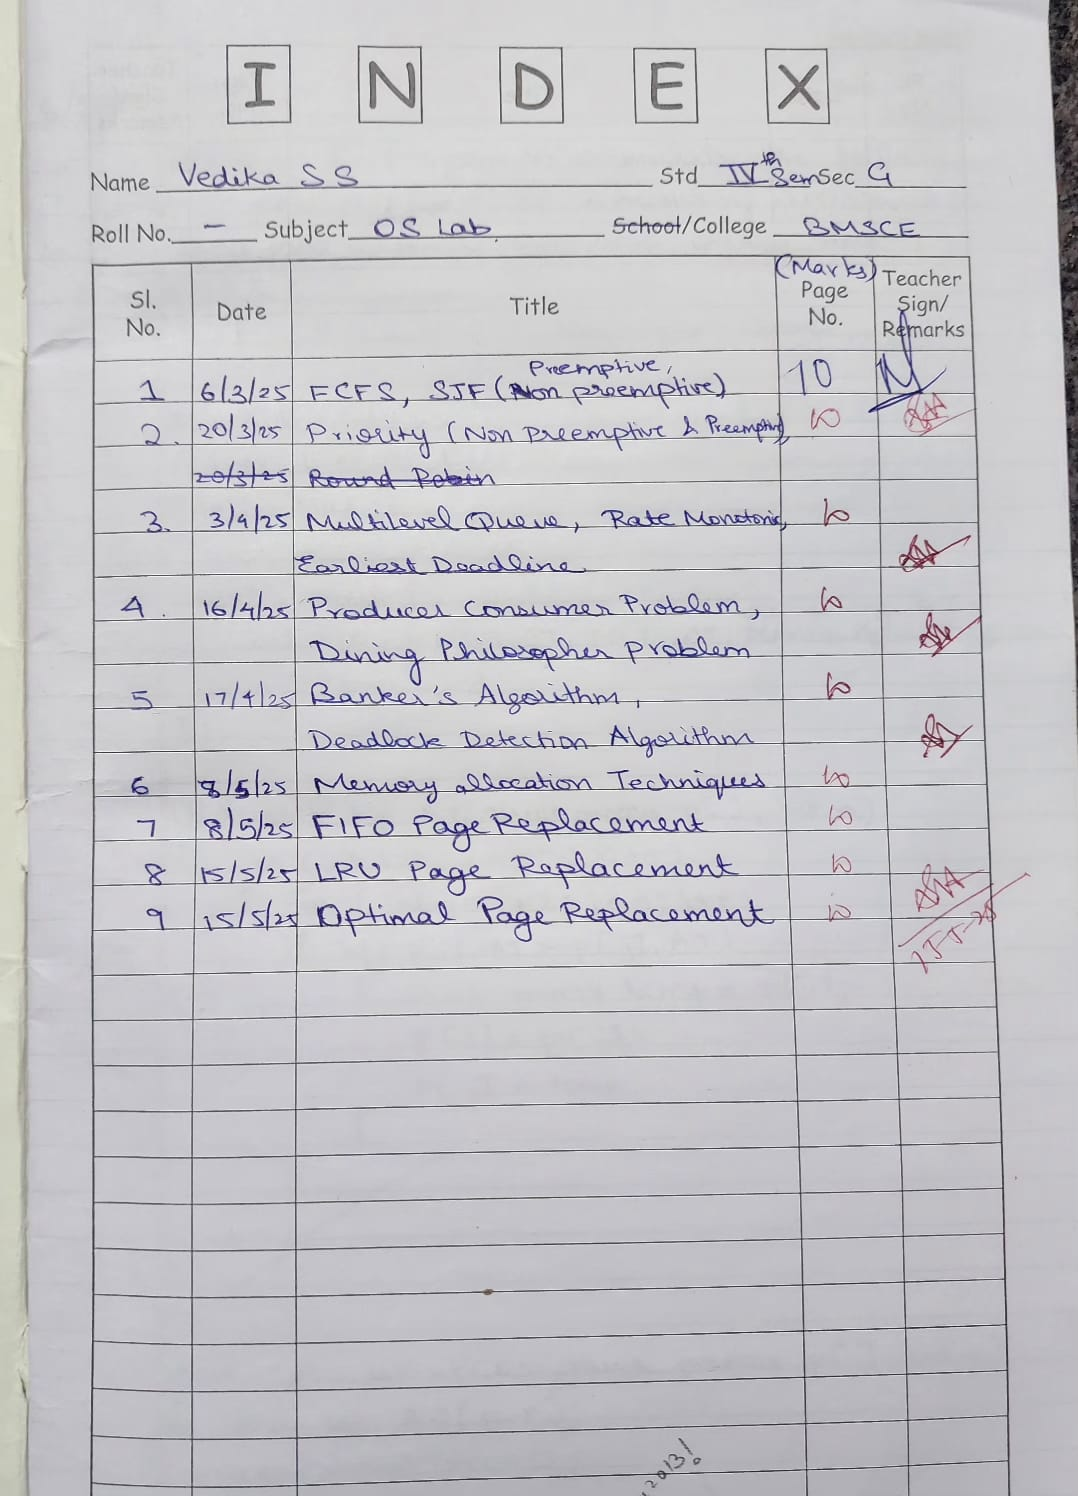 I N D E X
Name Vedika S S Std IVth Sem Sec G
Roll No. - Subject OS Lab School/College BMSCE
Sl. No. Date Title (Marks) Page No. Teacher Sign/ Remarks
Preemptive,
1 6/3/25 FCFS, SJF (Non preemptive) 10
2. 20/3/25 Priority (Non Preemptive & Preemptive) 10
20/3/25 Round Robin
3. 3/4/25 Multilevel Queue, Rate Monotonic, 10
Earliest Deadline
4. 16/4/25 Producer Consumer Problem, 10
Dining Philosopher problem
5 17/4/25 Banker's Algorithm, 10
Deadlock Detection Algorithm
6 8/5/25 Memory allocation Techniques 10
7 8/5/25 FIFO Page Replacement 10
8 15/5/25 LRU Page Replacement 10
9 15/5/25 Optimal Page Replacement 10
15-5-25
2013!